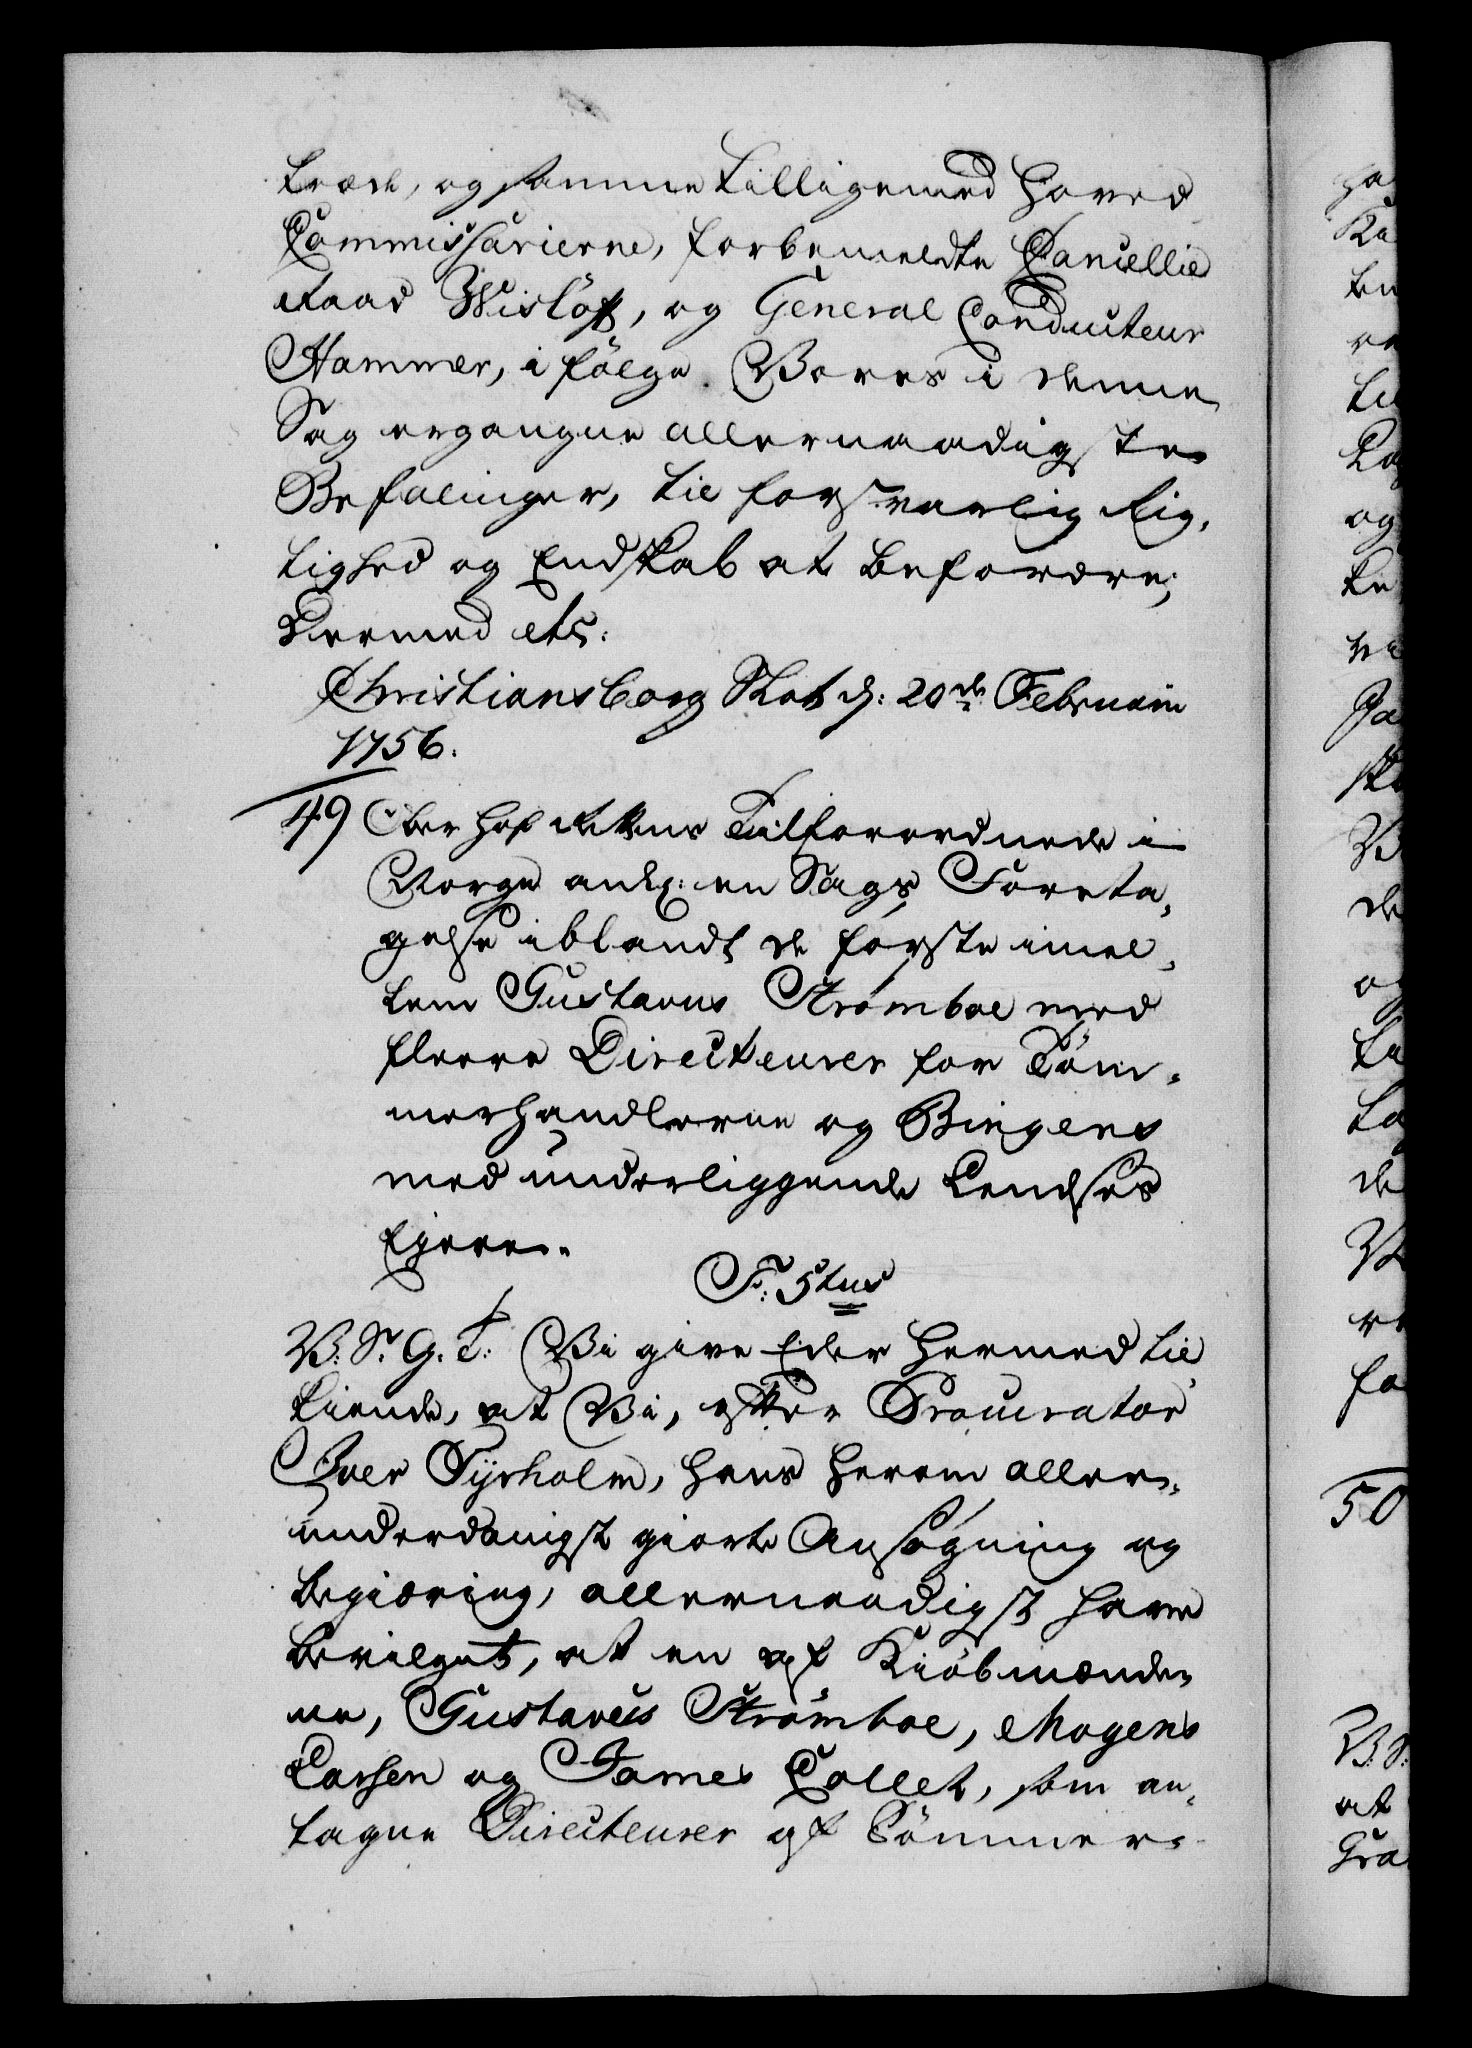 træde, og samme tilligemed Hoved
Commissarierne, forbemeldte Cancellie
Raad Wisløff, og General Conducteur
Hammer, i følge Vores i denne
Sag ergangne allernaadigste
Befalinger, til forsvarlig Rig,
tighed og Endskab at befordre;
Dermed etc:
Christiansborg Slot d: 20de Februarii
1756.
49 Ober Hof Rettens Tilforordnede i
Norge anlg: en Sags Foreta,
gelse iblandt de første imel,
lem Gustavus Strømboe med
fleere Directeurer for Tøm,
merhandlerne og Bingens
med underliggende Lendsers
Ejere.
F: 5tus
V. S. G. T: Vi give Eder hermed til
kiende, at Vi, efter Procurator
Iver Tyrholm, hans herom aller,
underdanigst giorte Ansøgning og
Begiæring, allernaadigst have
bevilget, at en af Kiøbmænde,
ne, Gustavus Strømboe, Mogens
Larsen og James Collet, som an,
tagne Directeurer af Tømmer,